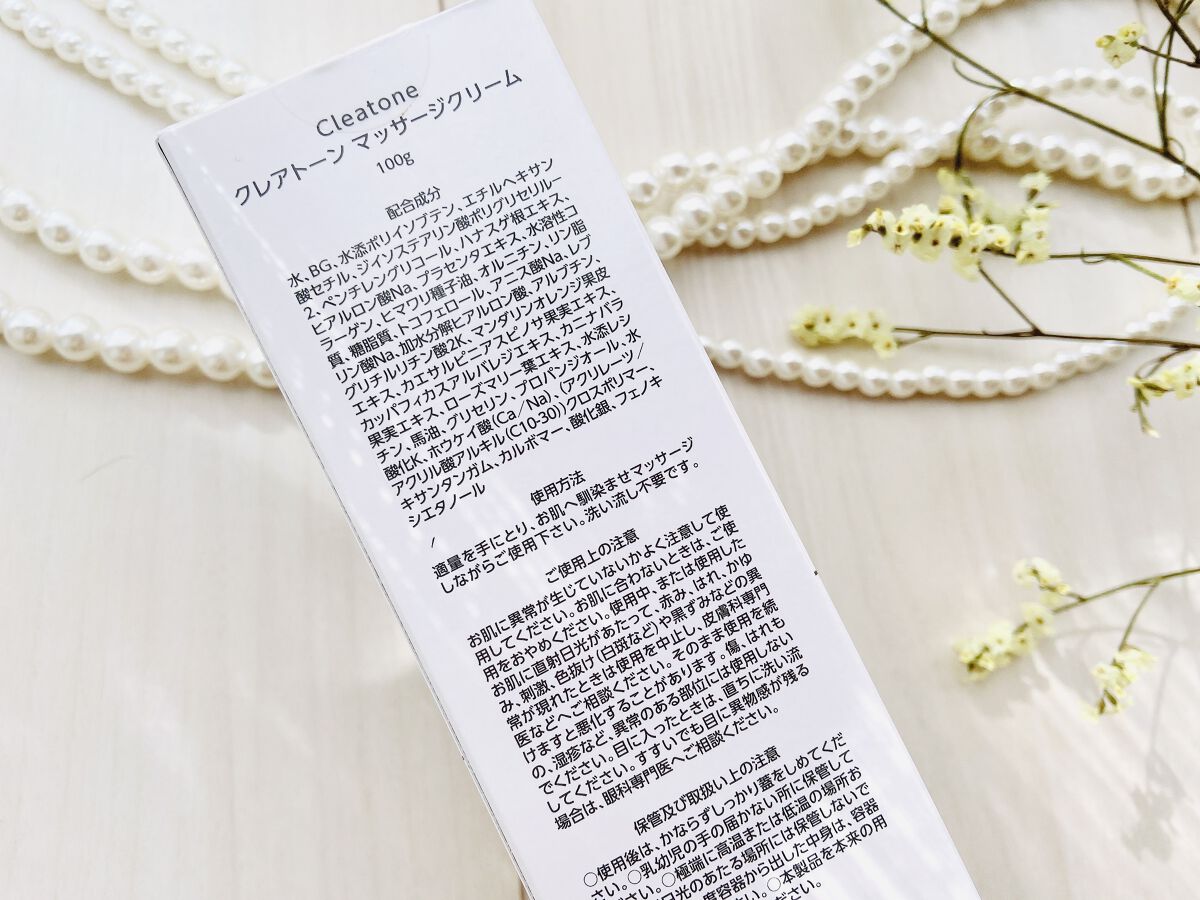 Cleatone
クレアトーン マッサージクリーム
100g
配合成分
水、BG、水添ポリイソブテン、エチルヘキサン
酸セチル、ジイソステアリン酸ポリグリセリル-
2、ペンチレングリコール、ハナスゲ根エキス、
ヒアルロン酸Na、プラセンタエキス、水溶性コ
ラーゲン、ヒマワリ種子油、オルニチン、リン脂
質、糖脂質、トコフェロール、アニス酸Na、レブ
リン酸Na、加水分解ヒアルロン酸、アルブチン、
グリチルリチン酸2K、マンダリンオレンジ果皮
エキス、カエサルピニアスピノサ果実エキス、
カッパフィカスアルバレジエキス、カニナバラ
果実エキス、ローズマリー葉エキス、水添レシ
チン、馬油、グリセリン、プロパンジオール、水
酸化K、ホウケイ酸(Ca/Na)、(アクリレーツ/
アクリル酸アルキル(C10-30))クロスポリマー、
キサンタンガム、カルボマー、酸化銀、フェノキ
シエタノール
/
使用方法
適量を手にとり、お肌へ馴染ませマッサージ
しながらご使用下さい。洗い流し不要です。
ご使用上の注意
お肌に異常が生じていないかよく注意して使
用してください。お肌に合わないときは、ご使
用をおやめください。使用中、または使用した
お肌に直射日光があたって、赤み、はれ、かゆ
み、刺激、色抜け(白斑など)や黒ずみなどの異
常が現れたときは使用を中止し、皮膚科専門
医などへご相談ください。そのまま使用を続
けますと悪化することがあります。傷、はれも
の、湿疹など、異常のある部位には使用しない
でください。目に入ったときは、直ちに洗い流
してください。すすいでも目に異物感が残る
場合は、眼科専門医へご相談ください。
保管及び取扱い上の注意
○使用後は、かならずしっかり蓋をしめてくだ
さい。○乳幼児の手の届かない所に保管して
ください。○極端に高温または低温の場所お
日光のあたる場所には保管しないで
度容器から出した中身は、容器
ださい。○本製品を本来の用